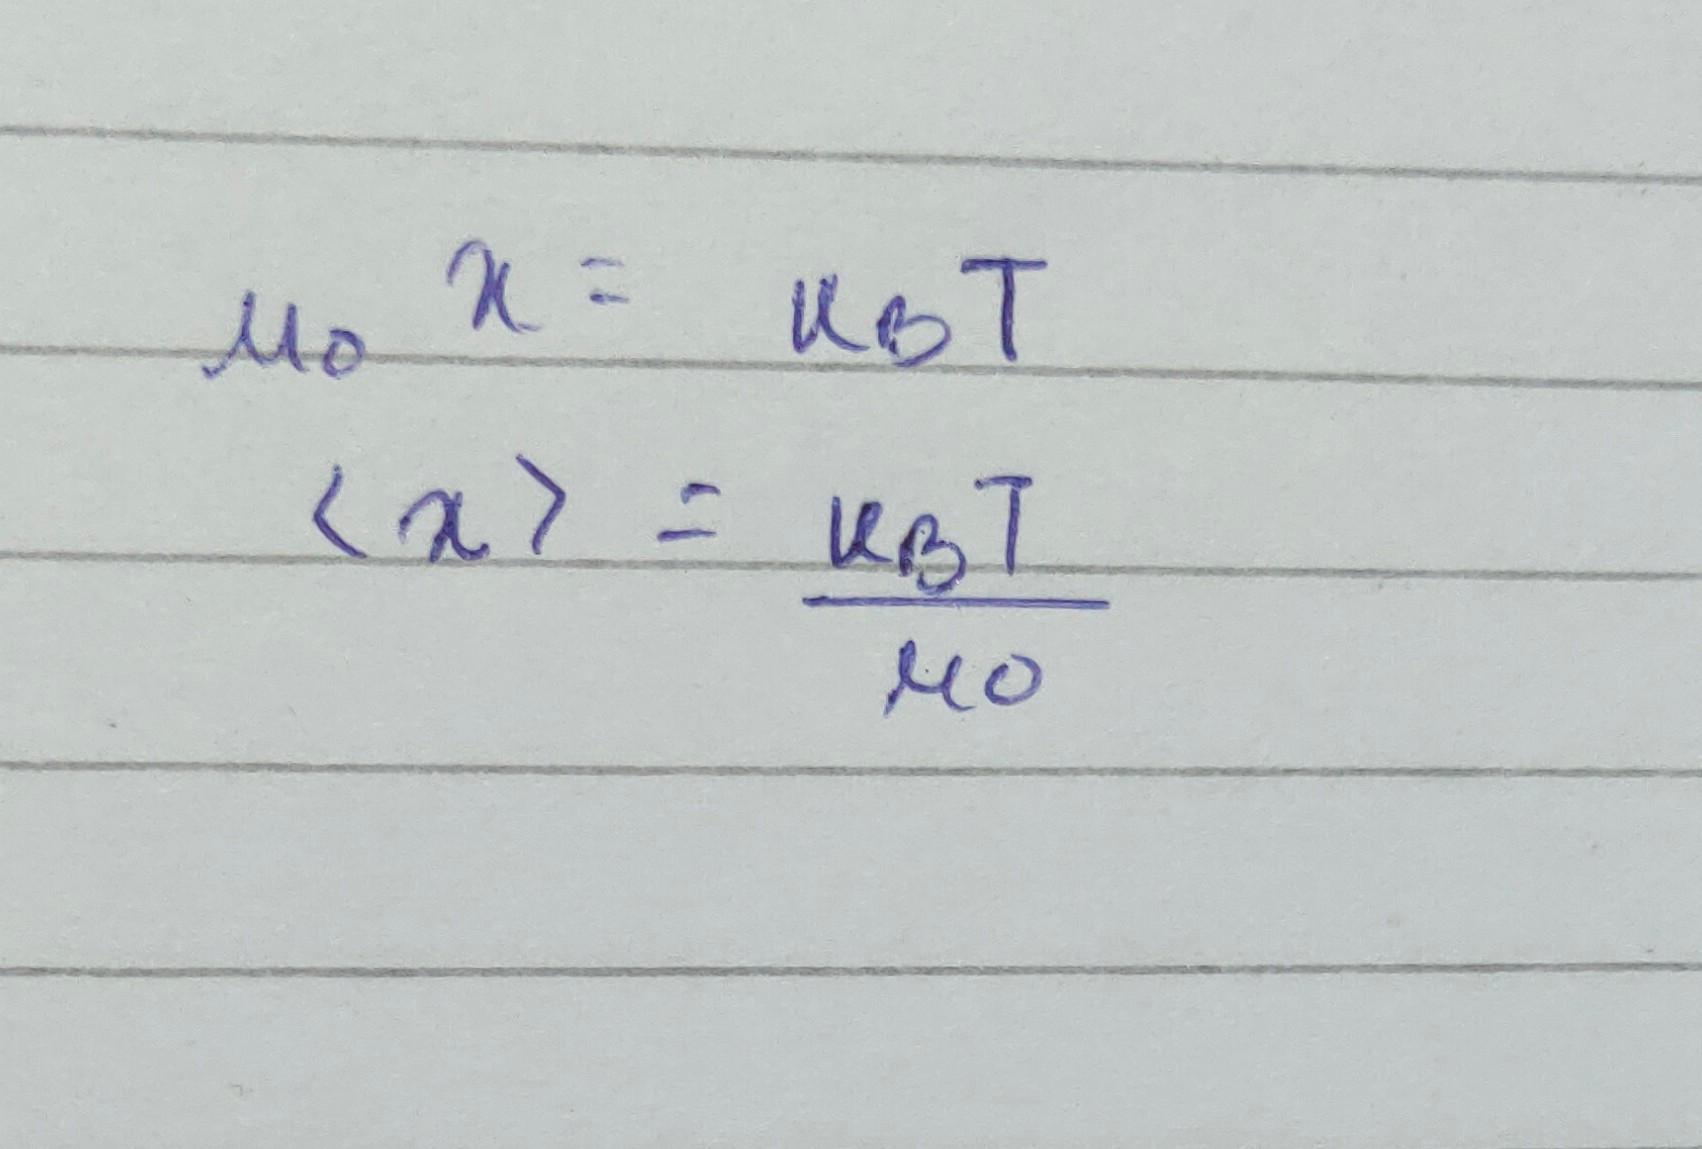 μ₀ x = k_B T
⟨x⟩ = k_B T / μ₀